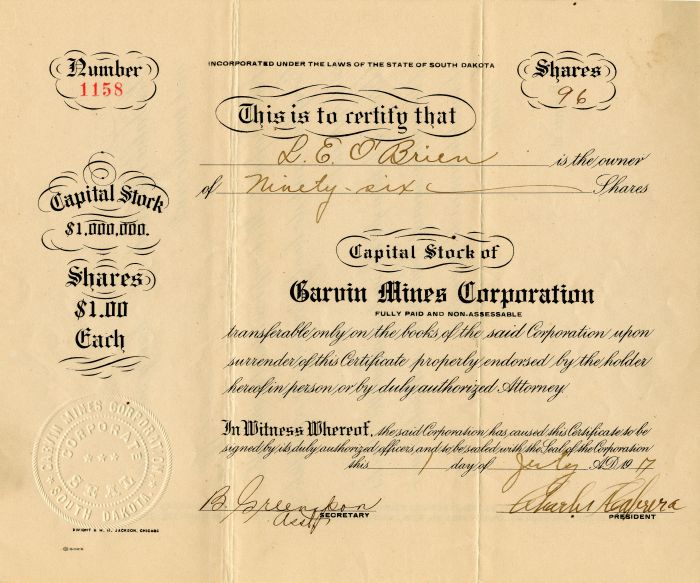 INCORPORATED UNDER THE LAWS OF THE STATE OF SOUTH DAKOTA
Number
1158
Shares
96
This is to certify that
L. E. O'Brien is the owner
of Ninety-six Shares
Capital Stock
$1,000,000.
Shares
$1.00
Each
Capital Stock of
Garvin Mines Corporation
FULLY PAID AND NON-ASSESSABLE
transferable only on the books of the said Corporation upon
surrender of this Certificate properly endorsed by the holder
hereof in person or by duly authorized Attorney.
In Witness Whereof, the said Corporation has caused this Certificate to be
signed by its duly authorized officers and to be sealed with the Seal of the Corporation
this day of July A.D. 1917
GARVIN MINES CORPORATION
CORPORATE
SEAL
SOUTH DAKOTA
B. Asst SECRETARY
Charles Cabrera PRESIDENT
DWIGHT & M. H. JACKSON, CHICAGO